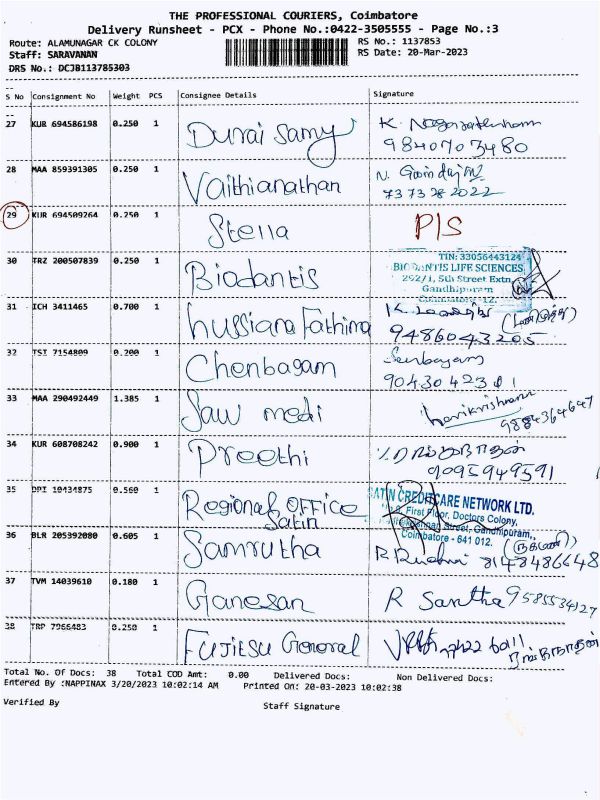 THE PROFESSIONAL COURIERS, Coimbatore
Delivery Runsheet - PCX - Phone No.:0422-3505555 - Page No.:3
Route: ALAMUNAGAR CK COLONY RS No.: 1137853
Staff: SARAVANAN RS Date: 20-Mar-2023
DRS No.: DCJB113785303
S No Consignment No Weight PCS Consignee Details Signature
27 KUR 694586198 0.250 1 Durai Samy K.
9840703480
28 MAA 859391305 0.250 1 Vaithianathan N.
7373282022
29 KUR 694509264 0.250 1 Stella P/S
30 TRZ 200507839 0.250 1 Biodantis
TIN: 33056443124
BIODANTIS LIFE SCIENCES
292/1, 5th Street Extn
Gandhipuram
Coimbatore-12.
31 ICH 3411465 0.700 1 hussiana Fathima K.
9486043205
32 TSI 7154809 0.200 1 Chenbagam Senbagam
9043042301
33 MAA 290492449 1.385 1 Saw medi harikrishnan
9884364647
34 KUR 608708242 0.900 1 Preethi
9095949591
35 DPI 10434875 0.560 1 Regional Office
Satin
SATIN CREDITCARE NETWORK LTD.
First Floor, Doctors Colony,
Street, Gandhipuram,
Coimbatore - 641 012.
36 BLR 205392080 0.605 1 Samrutha R 8148486648
37 TVM 14039610 0.180 1 Ganesan R Santha 9585534127
38 TRP 7966483 0.250 1 Fujitsu General
Total No. Of Docs: 38 Total COD Amt: 0.00 Delivered Docs: Non Delivered Docs:
Entered By :NAPPINAX 3/20/2023 10:02:14 AM Printed On: 20-03-2023 10:02:38
Verified By Staff Signature